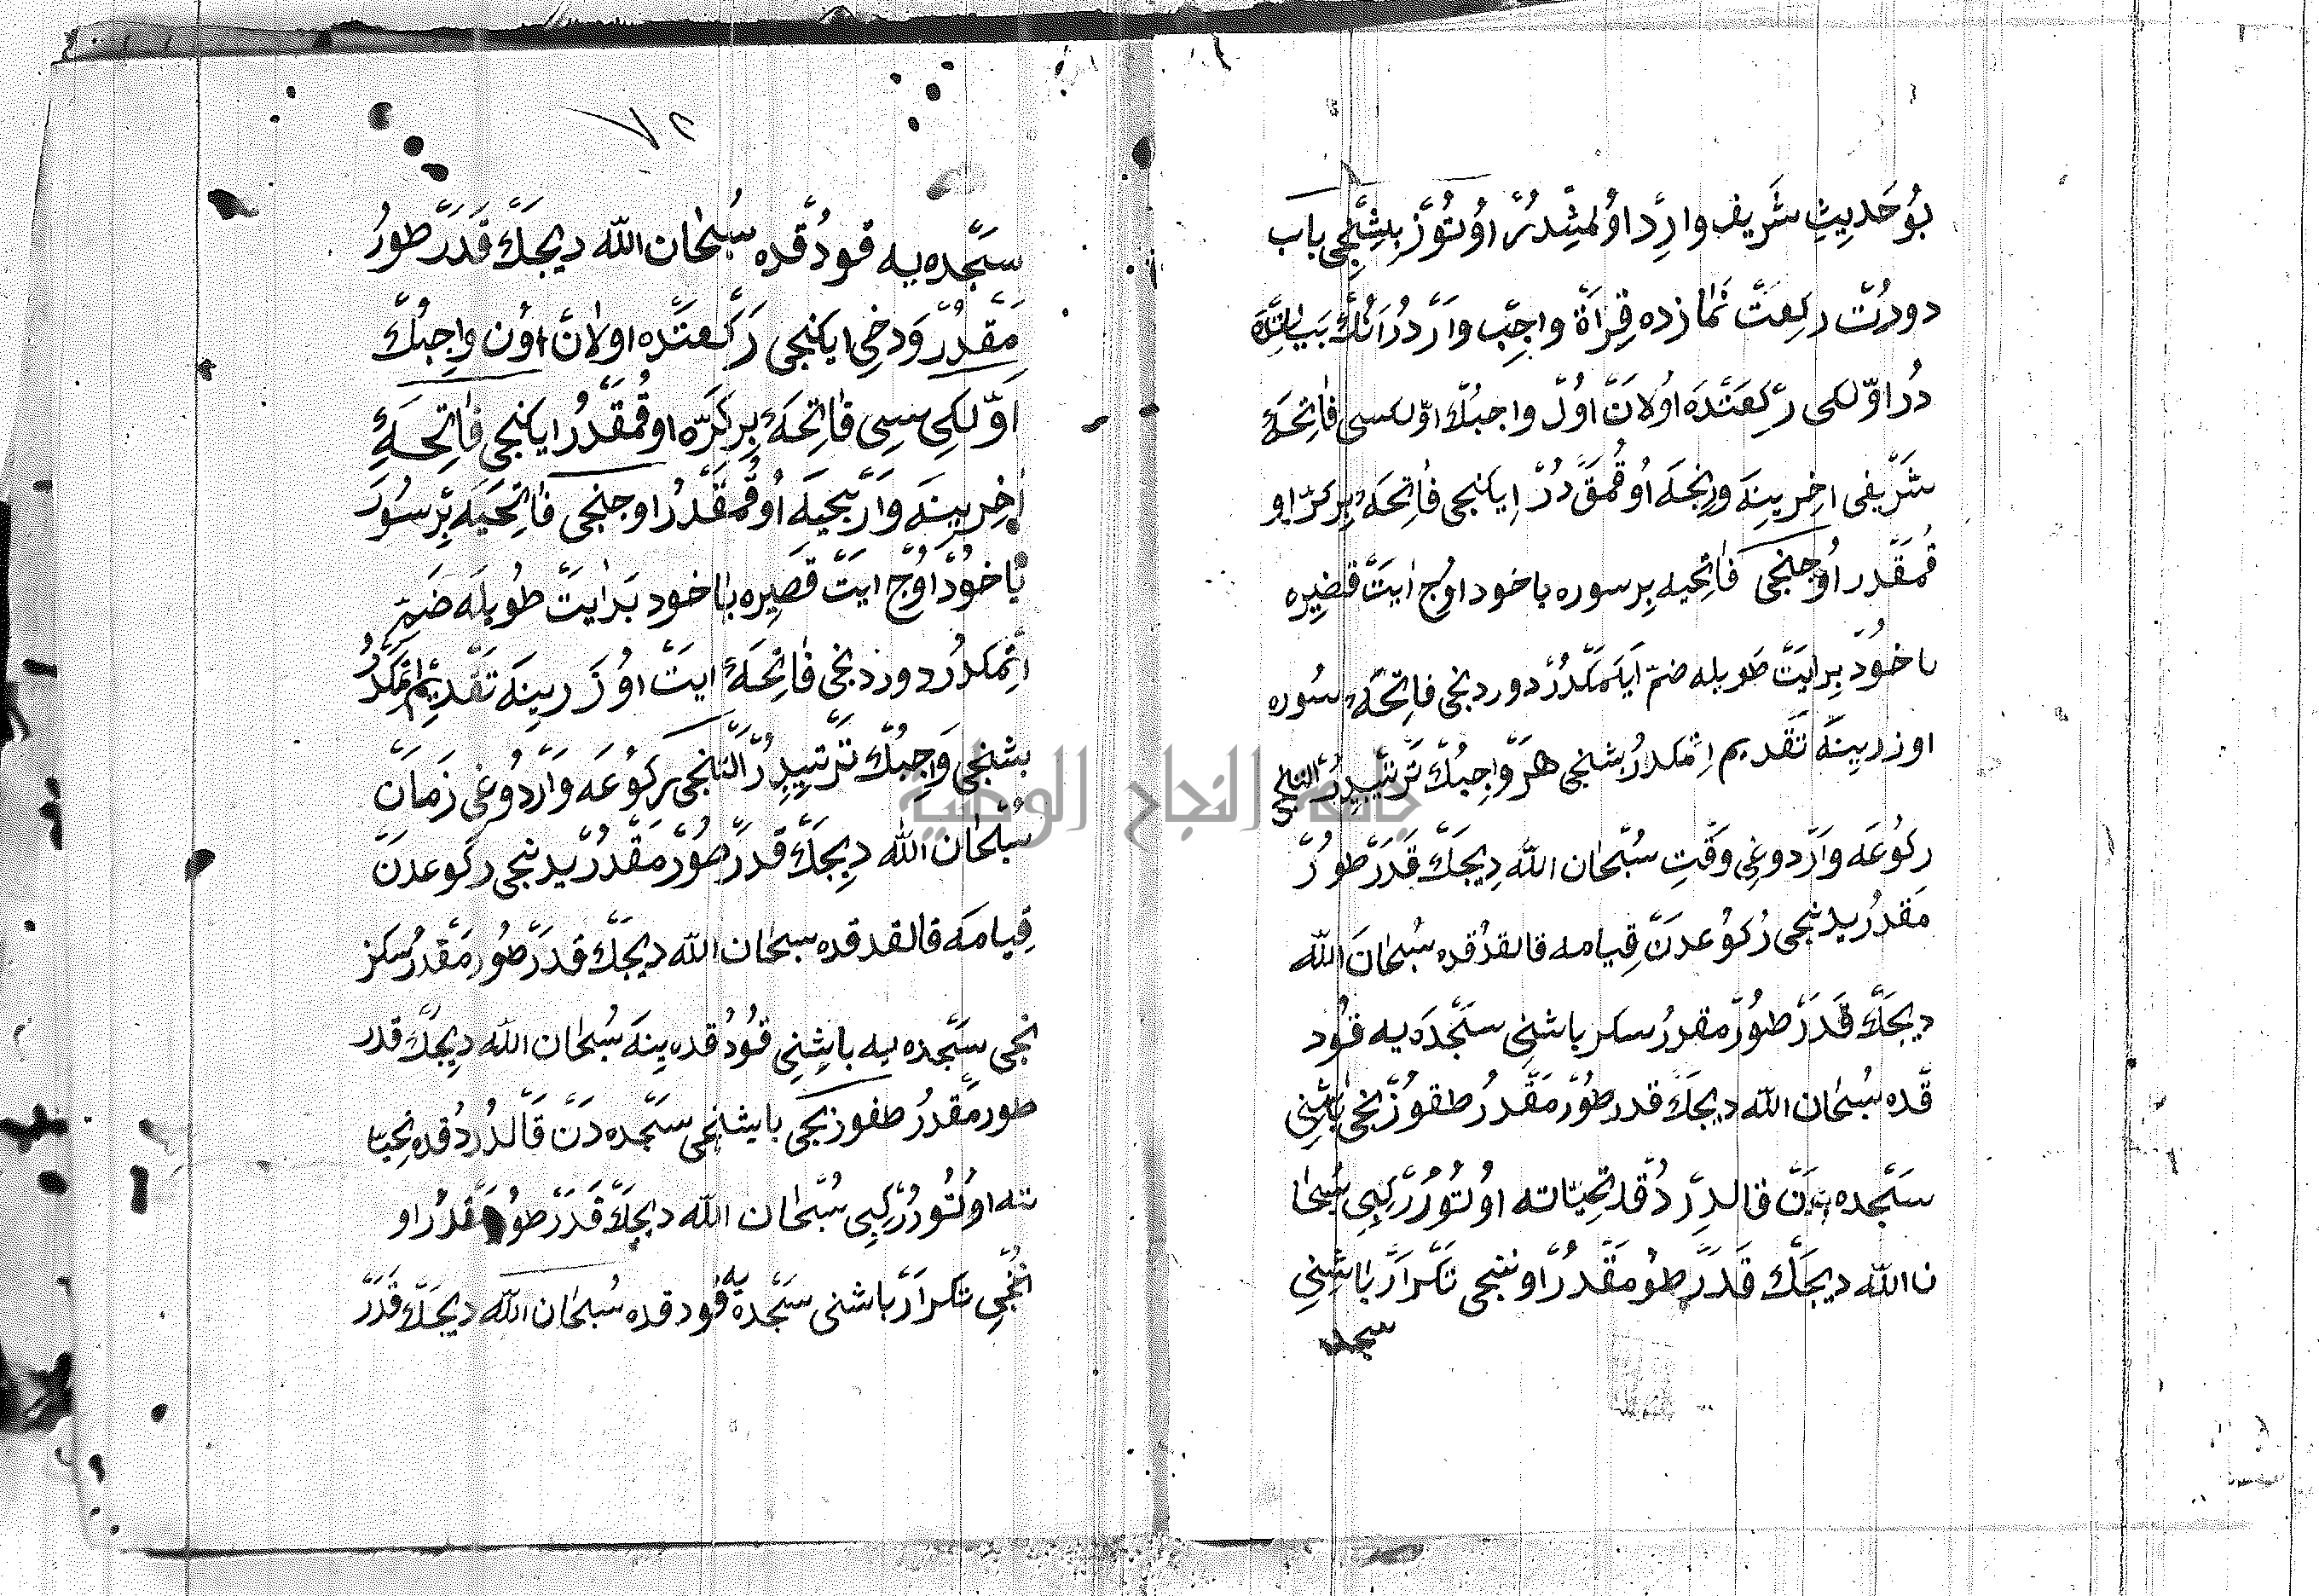 بُو حَدِيثِ شَرِيف وارِد اوُلمِشْدُرْ اوُتُوزْ بِشِنْجِى باب
دورْت ركِعتْ نمازده قِراَة واجِب وارْدُر اَنُكْ بَياننده
دُر اوّلكى ركعَتده اوُلانْ اوُن واجبُكْ اوّلكسى فاتِحَهٔ
شَرِيفى اخِرينه وارنجه اوُقُمقْدُرْ ايكنجى فاتِحَهٔ بِركرّه او
قُمقْدر اوُجنجى فاتِحيه بِر سوره ياخود اوُج ايَتْ قصيره
ياخُود بِر ايَتْ طويله ضمّ ايلَمكْدُرْ دوردنجى فاتِحَهٔ سُوره
اوزرينه تَقْديم اِتمكدرُ بشنجى هر واجِبُكْ تَرتيبيدرْ التنجى
ركوُعَه وارْدوغى وقتِ سُبْحان الله ديجَكْ قَدَرْ طورُ
مَقدرُ يدنجى رُكوُعدنْ قِيامه قالقدُقده سُبْحانَ الله
ديجَكْ قَدَرْ طوُرْمقدرُ سكز باشنى سَجْدَه يه قوُد
قْده سُبْحان الله ديجَكْ قدر طوُرْمَقْدرُ طقوُزُنجى باشِنى
سَجْده دن قالدِرْدُقده تحِيّاته اوُتوُرُرْ كِبى سُبْحا
ن الله ديجَكْ قَدَرْ طوُمَقْدُرْ اوننجى تَكْرارْ باشِنى
سجده
٧٢
سَجْده يه قودُقْده سُبْحان الله ديجَكْ قَدَرْ طورُ
مَقْدُرْ وَدخِى ايكنجى رَكعتْده اولانْ اوُن واجِبُكْ
اَوّلكِى سِى فاتِحَهٔ بِركَرّه اوقُمقْدرُ ايكنجى فاتِحَهٔ
اخِرينَه وارْنجيَه اوُقُمقْدُر اوجنجى فاتِحَيَه بِرْ سوُرَ
ياخُودْ اوُجْ ايَتْ قَصِيره ياخود بر ايَتْ طُويلَه ضَمّ
اِتمكدُر دوردنجى فاتِحَهٔ ايَتْ اوُزَرينَه تَقْديم اِتمكدُر
بشنجى وَاجِبُكْ تَرتيبِيدِرْ التنجى ركوُعَه وارْدوُغى زَمانْ
سُبْحان الله ديجَكْ قدَرْ طوُرْمَقْدُرْ يدنجى ركوعدنْ
قِيامَه قالقدقده سبحان الله ديجَكْ قدَرْ طوُرمَقْدرُ سكز
نجى سَجْده يه باشِنى قوُدُقده ينَه سُبْحان الله ديجَكْ قدر
طورمَقْدرُ طقوزنجى باشنى سَجْده دَنْ قالدُرْدُقده تحِيّا
ته اوُتُورُرْ كِبى سُبْحان الله ديجَكْ قَدَرْ طوُرمَقْدرُ او
نُنْجى تكرارْ باشنى سَجْدهٔ يه قوُدقده سُبْحان الله ديجَكْ قَدَرْ
جامعة النجاح الوطنية